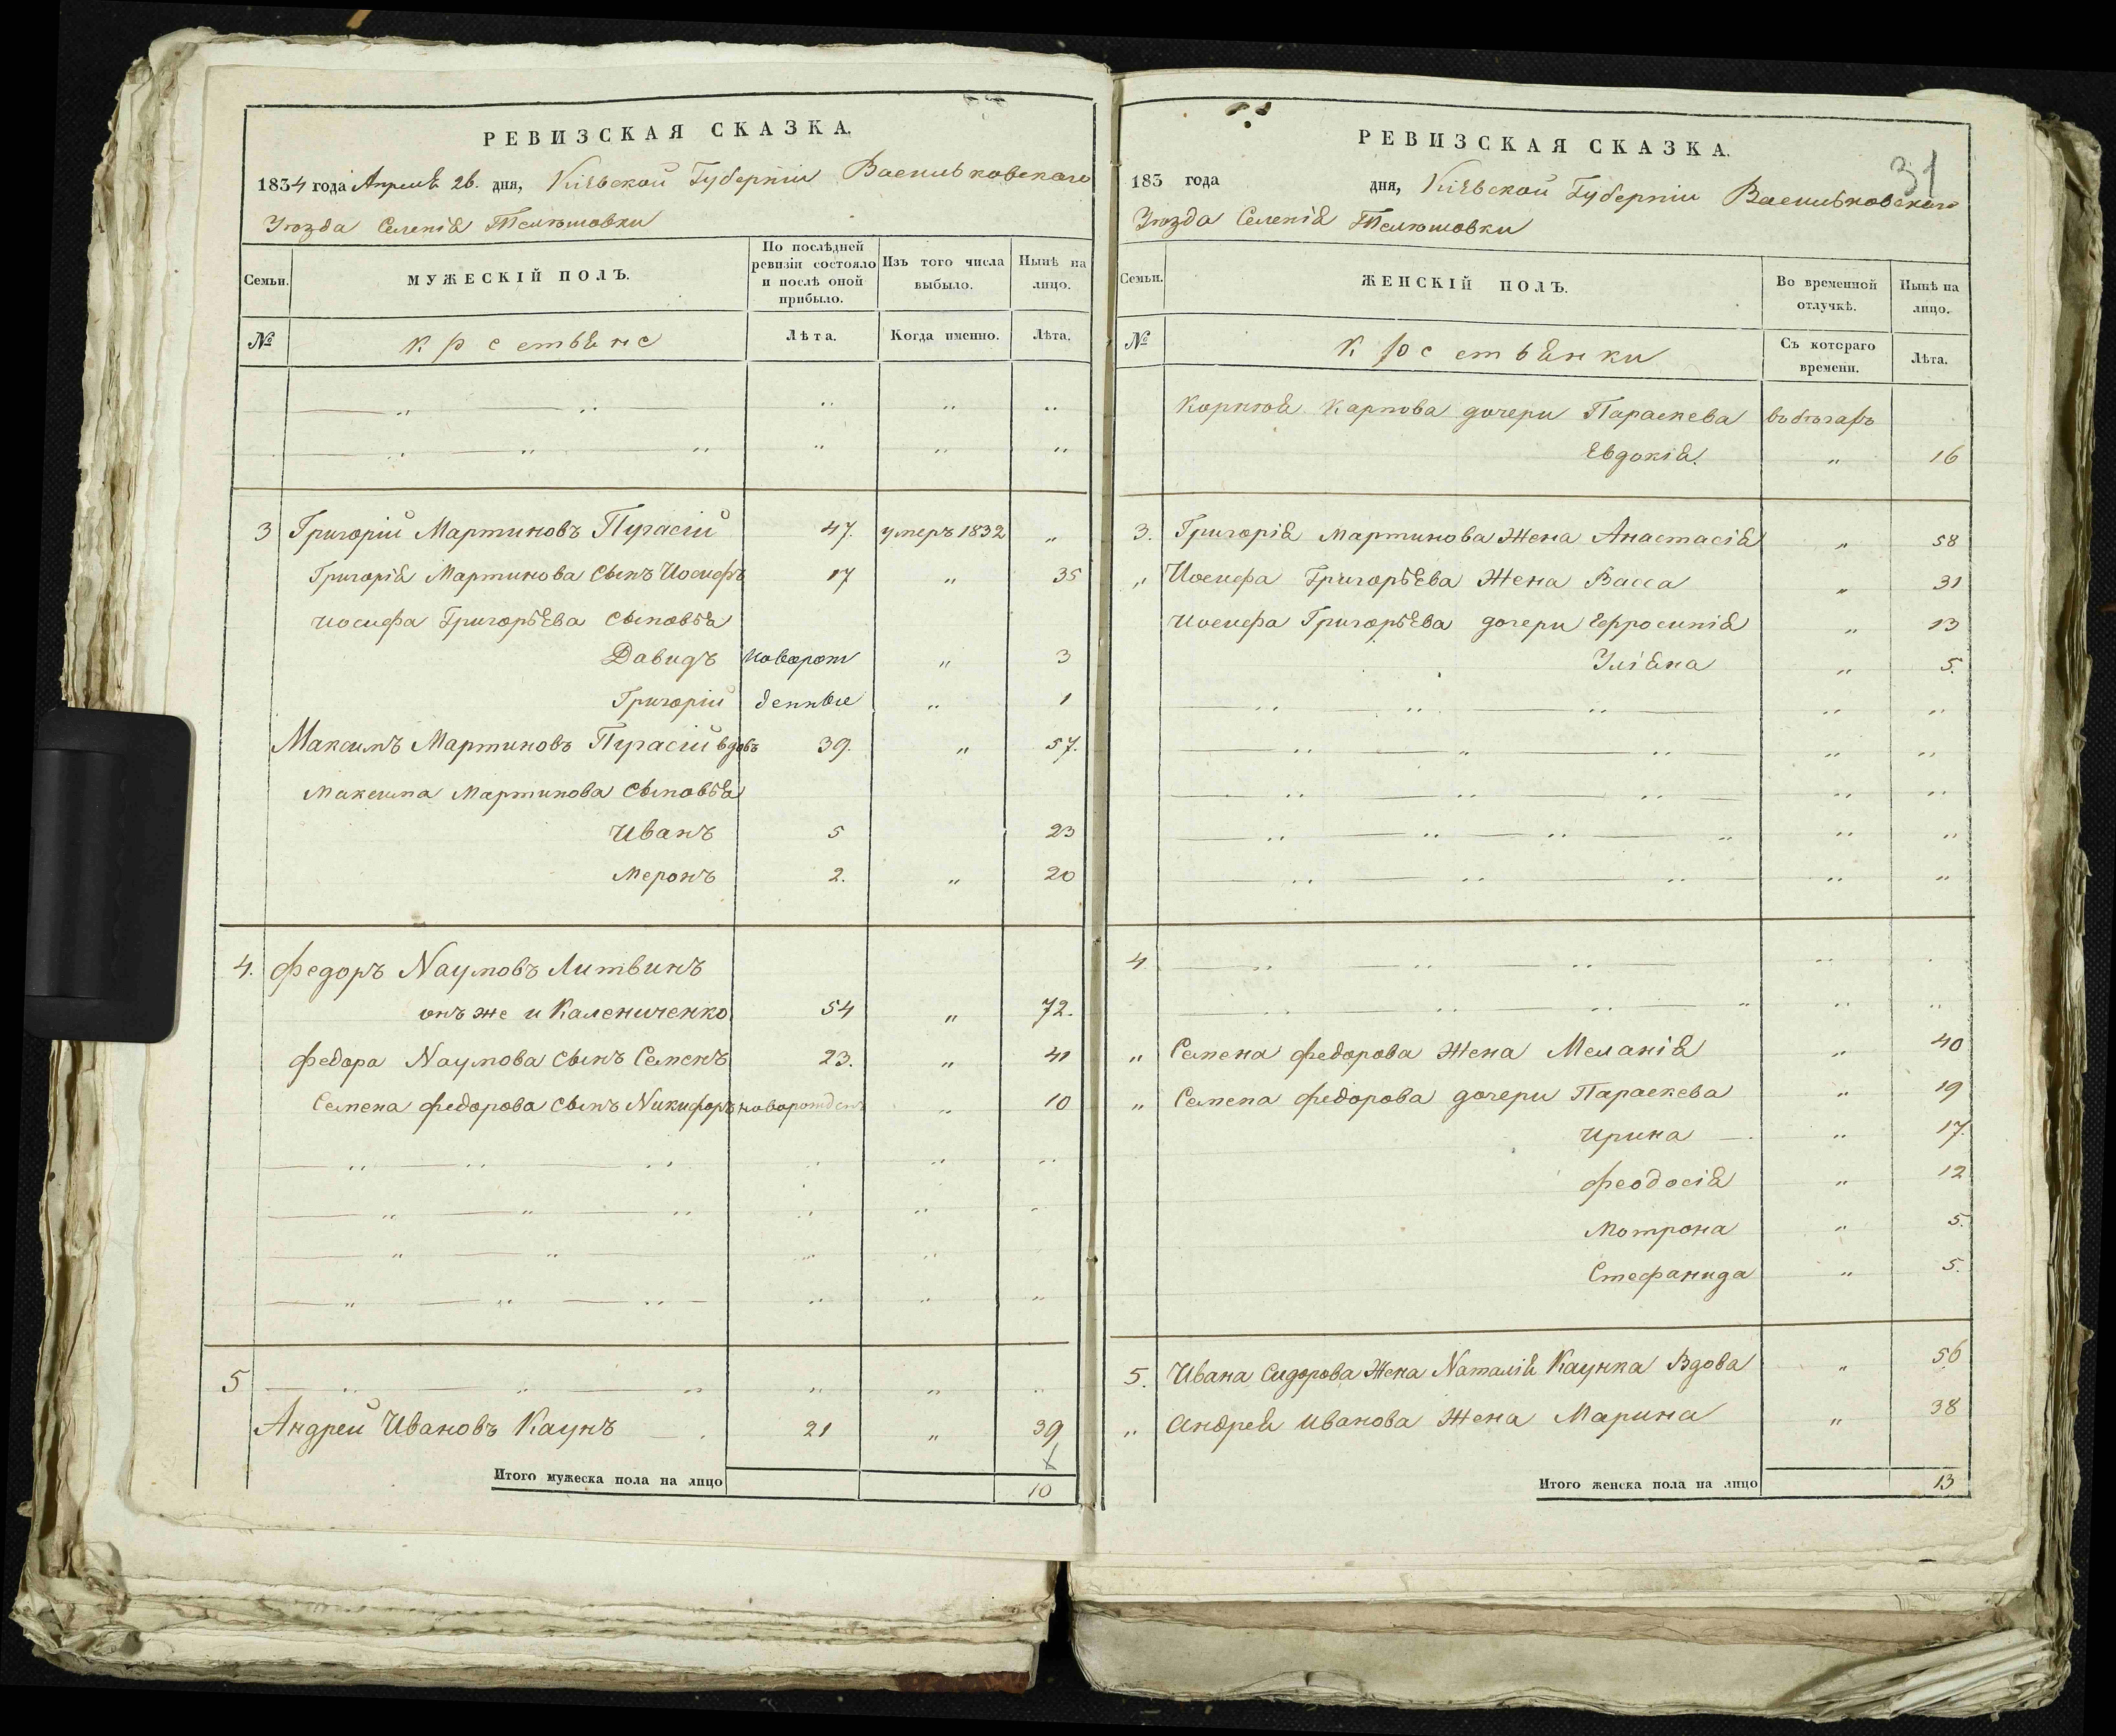 РЕВИЗСКАЯ СКАЗКА.
1834 года Апреля 26. дня, Кіевской Губерніи Васильковскаго
Уѣзда Селенія Телюшовки
Семьи.
МУЖЕСКІЙ ПОЛЪ.
По послѣдней ревизіи состояло и послѣ оной прибыло.
Изъ того числа выбыло.
Нынѣ на лицо.
№
крестьяне
Лѣта.
Когда именно.
Лѣта.
3 Григорій Мартиновъ Пугасій 47. умеръ 1832 „
Григорія Мартинова сынъ Иосифъ 17 „ 35
Иосифа Григорьева сыновья
Давидъ новорож „ 3
Григорій денные „ 1
Максимъ Мартиновъ Пугасій вдовъ 39. „ 57.
Максима Мартинова сыновья
Иванъ 5 23
Меронъ 2. „ 20
4. Федоръ Наумовъ Литвинъ
онъ же и Калениченко 54 „ 72.
Федора Наумова сынъ Семенъ 23. „ 41
Семена Федорова сынъ Никифоръ новорожден „ 10
5
Андрей Ивановъ Каунъ 21 „ 39
Итого мужеска пола на лицо 10
31
РЕВИЗСКАЯ СКАЗКА.
183 года дня, Кіевской Губерніи Васильковскаго
Уѣзда Селенія Телюшовки
Семьи.
ЖЕНСКІЙ ПОЛЪ.
Во временной отлучкѣ.
Нынѣ на лицо.
№
крестьянки
Съ котораго времени.
Лѣта.
Корнея Карпова дочери Параскева въ бѣгахъ
Евдокія „ 16
3. Григорія Мартинова жена Анастасія „ 58
„ Иосифа Григорьева жена Васса „ 31
Иосифа Григорьева дочери Ефросинія „ 13
Уліяна „ 5.
4
„ Семена Федорова жена Меланія „ 40
„ Семена Федорова дочери Параскева „ 19
Ирина „ 17.
Феодосія „ 12
Мотрона „ 5.
Стефанида „ 5.
5. Ивана Сидорова жена Наталія Каунка вдова „ 56
„ Андрея Иванова жена Марина „ 38
Итого женска пола на лицо 13